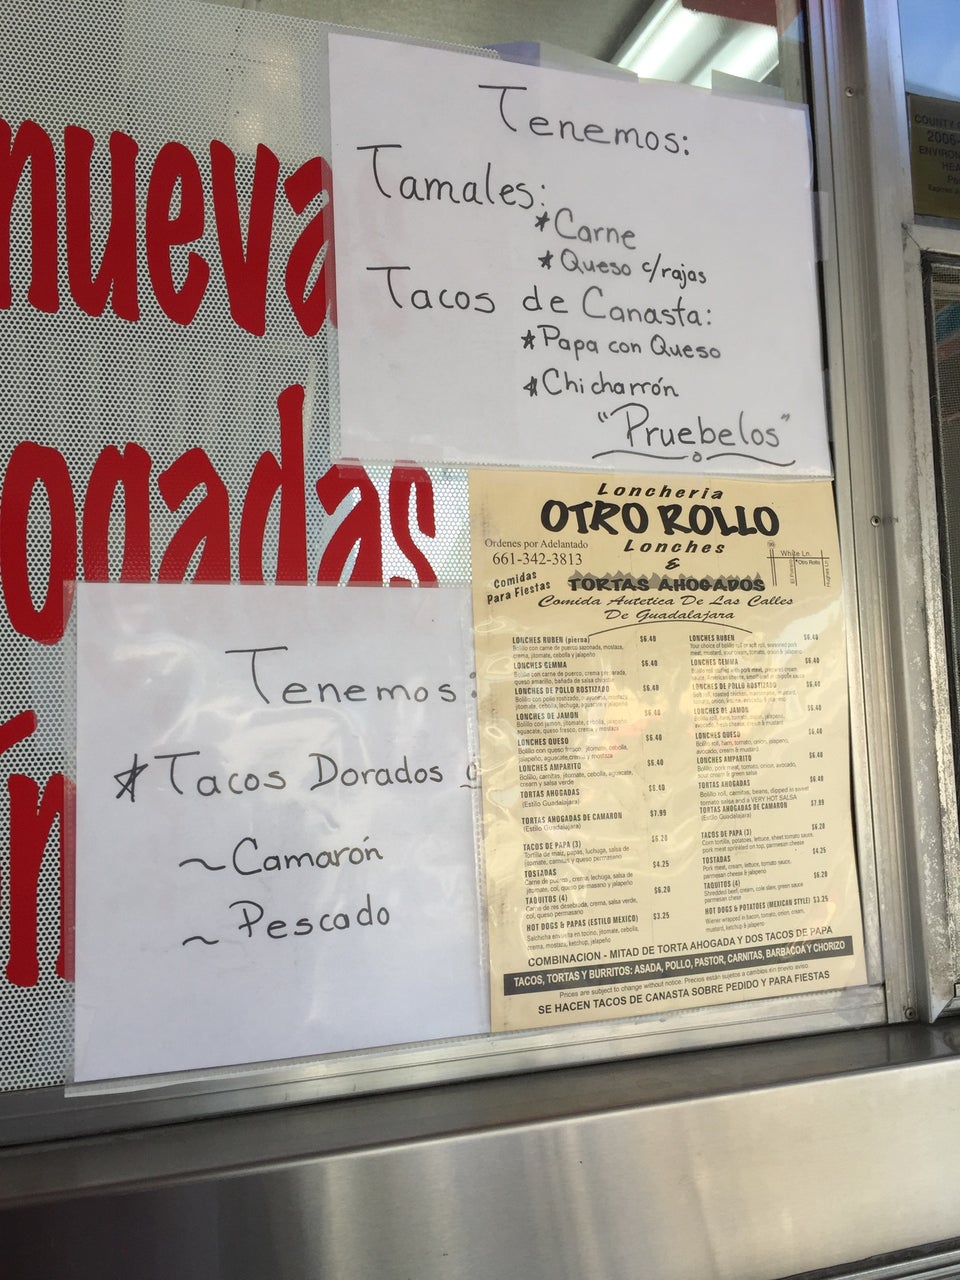 nueva
ogadas
Tenemos:
Tamales:
*Carne
*Queso c/rajas
Tacos de Canasta:
*Papa con Queso
*Chicharrón
"Pruebelos"
Tenemos:
*Tacos Dorados
~Camarón
~Pescado
Loncheria
OTRO ROLLO
Lonches
&
TORTAS AHOGADOS
Ordenes por Adelantado
661-342-3813
Comidas
Para Fiestas
White Ln.
Otro Rollo
Comida Autetica De Las Calles
De Guadalajara
LONCHES RUBEN (pierna) $6.40
Bolillo con carne de puerco sazonada, mostaza,
crema, jitomate, cebolla y jalapeño
LONCHES GEMMA $6.40
Bolillo con carne de puerco, crema preparada,
queso amarillo, bañada de salsa chicotle
LONCHES DE POLLO ROSTIZADO $6.40
jitomate, cebolla, lechuga, aguacate y jalapeño
LONCHES DE JAMON $6.40
Bolillo con jamon, jitomate, cebolla, jalapeño,
aguacate, queso fresco, crema y mostaza
LONCHES QUESO $6.40
Bolillo con queso fresco, jitomate, cebolla,
jalapeño, aguacate, crema y mostaza
LONCHES AMPARITO $6.40
Bolillo, carnitas, jitomate, cebolla, aguacate,
crema y salsa verde
TORTAS AHOGADAS $6.40
(Estilo Guadalajara)
TORTAS AHOGADAS DE CAMARON $7.99
(Estilo Guadalajara)
TACOS DE PAPA (3) $6.20
Tortilla de maiz, papas, luchuga, salsa de
jitomate, carnitas y queso permasano
TOSTADAS $4.25
Carne de puerco, crema, lechuga, salsa de
jitomate, col, queso permasano y jalapeño
TAQUITOS (4) $6.20
Carne de res desebrada, crema, salsa verde,
col, queso permasano
HOT DOGS & PAPAS (ESTILO MEXICO) $3.25
Salchicha envuelta en tocino, jitomate, cebolla,
crema, mostaza, ketchup, jalapeño
LONCHES RUBEN $6.40
Your choice of bolillo roll or soft roll, seasoned pork
meat, mustard, sour cream, tomato, onion & jalapeno
LONCHES GEMMA $6.40
LONCHES DE POLLO ROSTIZADO $6.40
LONCHES DE JAMON $6.40
avocado, fresh cheese, cream & mustard
LONCHES QUESO $6.40
Bolillo roll, ham, tomato, onion, jalapeno,
avocado, cream & mustard
LONCHES AMPARITO $6.40
Bolillo, pork meat, tomato, onion, avocado,
sour cream & green salsa
TORTAS AHOGADAS $6.40
Bolillo roll, carnitas, beans, dipped in sweet
tomato salsa and a VERY HOT SALSA
TORTAS AHOGADAS DE CAMARON $7.99
(Estilo Guadalajara)
TACOS DE PAPA (3) $6.20
Corn tortilla, potatoes, lettuce, sheet tomato sauce,
pork meat sprinkled on top, parmesan cheese
TOSTADAS $4.25
Pork meat, cream, lettuce, tomato sauce,
parmesan cheese & jalapeño
TAQUITOS (4) $6.20
Shredded beef, cream, cole slaw, green sauce
parmesan chese
HOT DOGS & POTATOES (MEXICAN STYLE) $3.25
Wiener wrapped in bacon, tomato, onion, cream,
mustard, ketchup & jalapeno
COMBINACION - MITAD DE TORTA AHOGADA Y DOS TACOS DE PAPA
TACOS, TORTAS Y BURRITOS: ASADA, POLLO, PASTOR, CARNITAS, BARBACOA Y CHORIZO
Prices are subject to change without notice. Precios están sujetos a cambios sin previo aviso
SE HACEN TACOS DE CANASTA SOBRE PEDIDO Y PARA FIESTAS